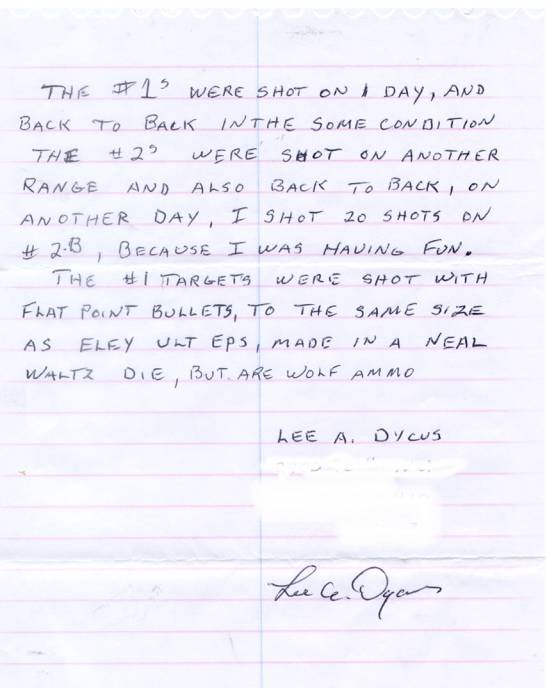 THE #1S WERE SHOT ON 1 DAY, AND
BACK TO BACK IN THE SOME CONDITION
THE #2S WERE SHOT ON ANOTHER
RANGE AND ALSO BACK TO BACK, ON
ANOTHER DAY, I SHOT 20 SHOTS ON
# 2-B, BECAUSE I WAS HAVING FUN.
THE #1 TARGETS WERE SHOT WITH
FLAT POINT BULLETS, TO THE SAME SIZE
AS ELEY ULT EPS, MADE IN A NEAL
WALTZ DIE, BUT. ARE WOLF AMMO
LEE A. DYCUS
Lee A. Dycus